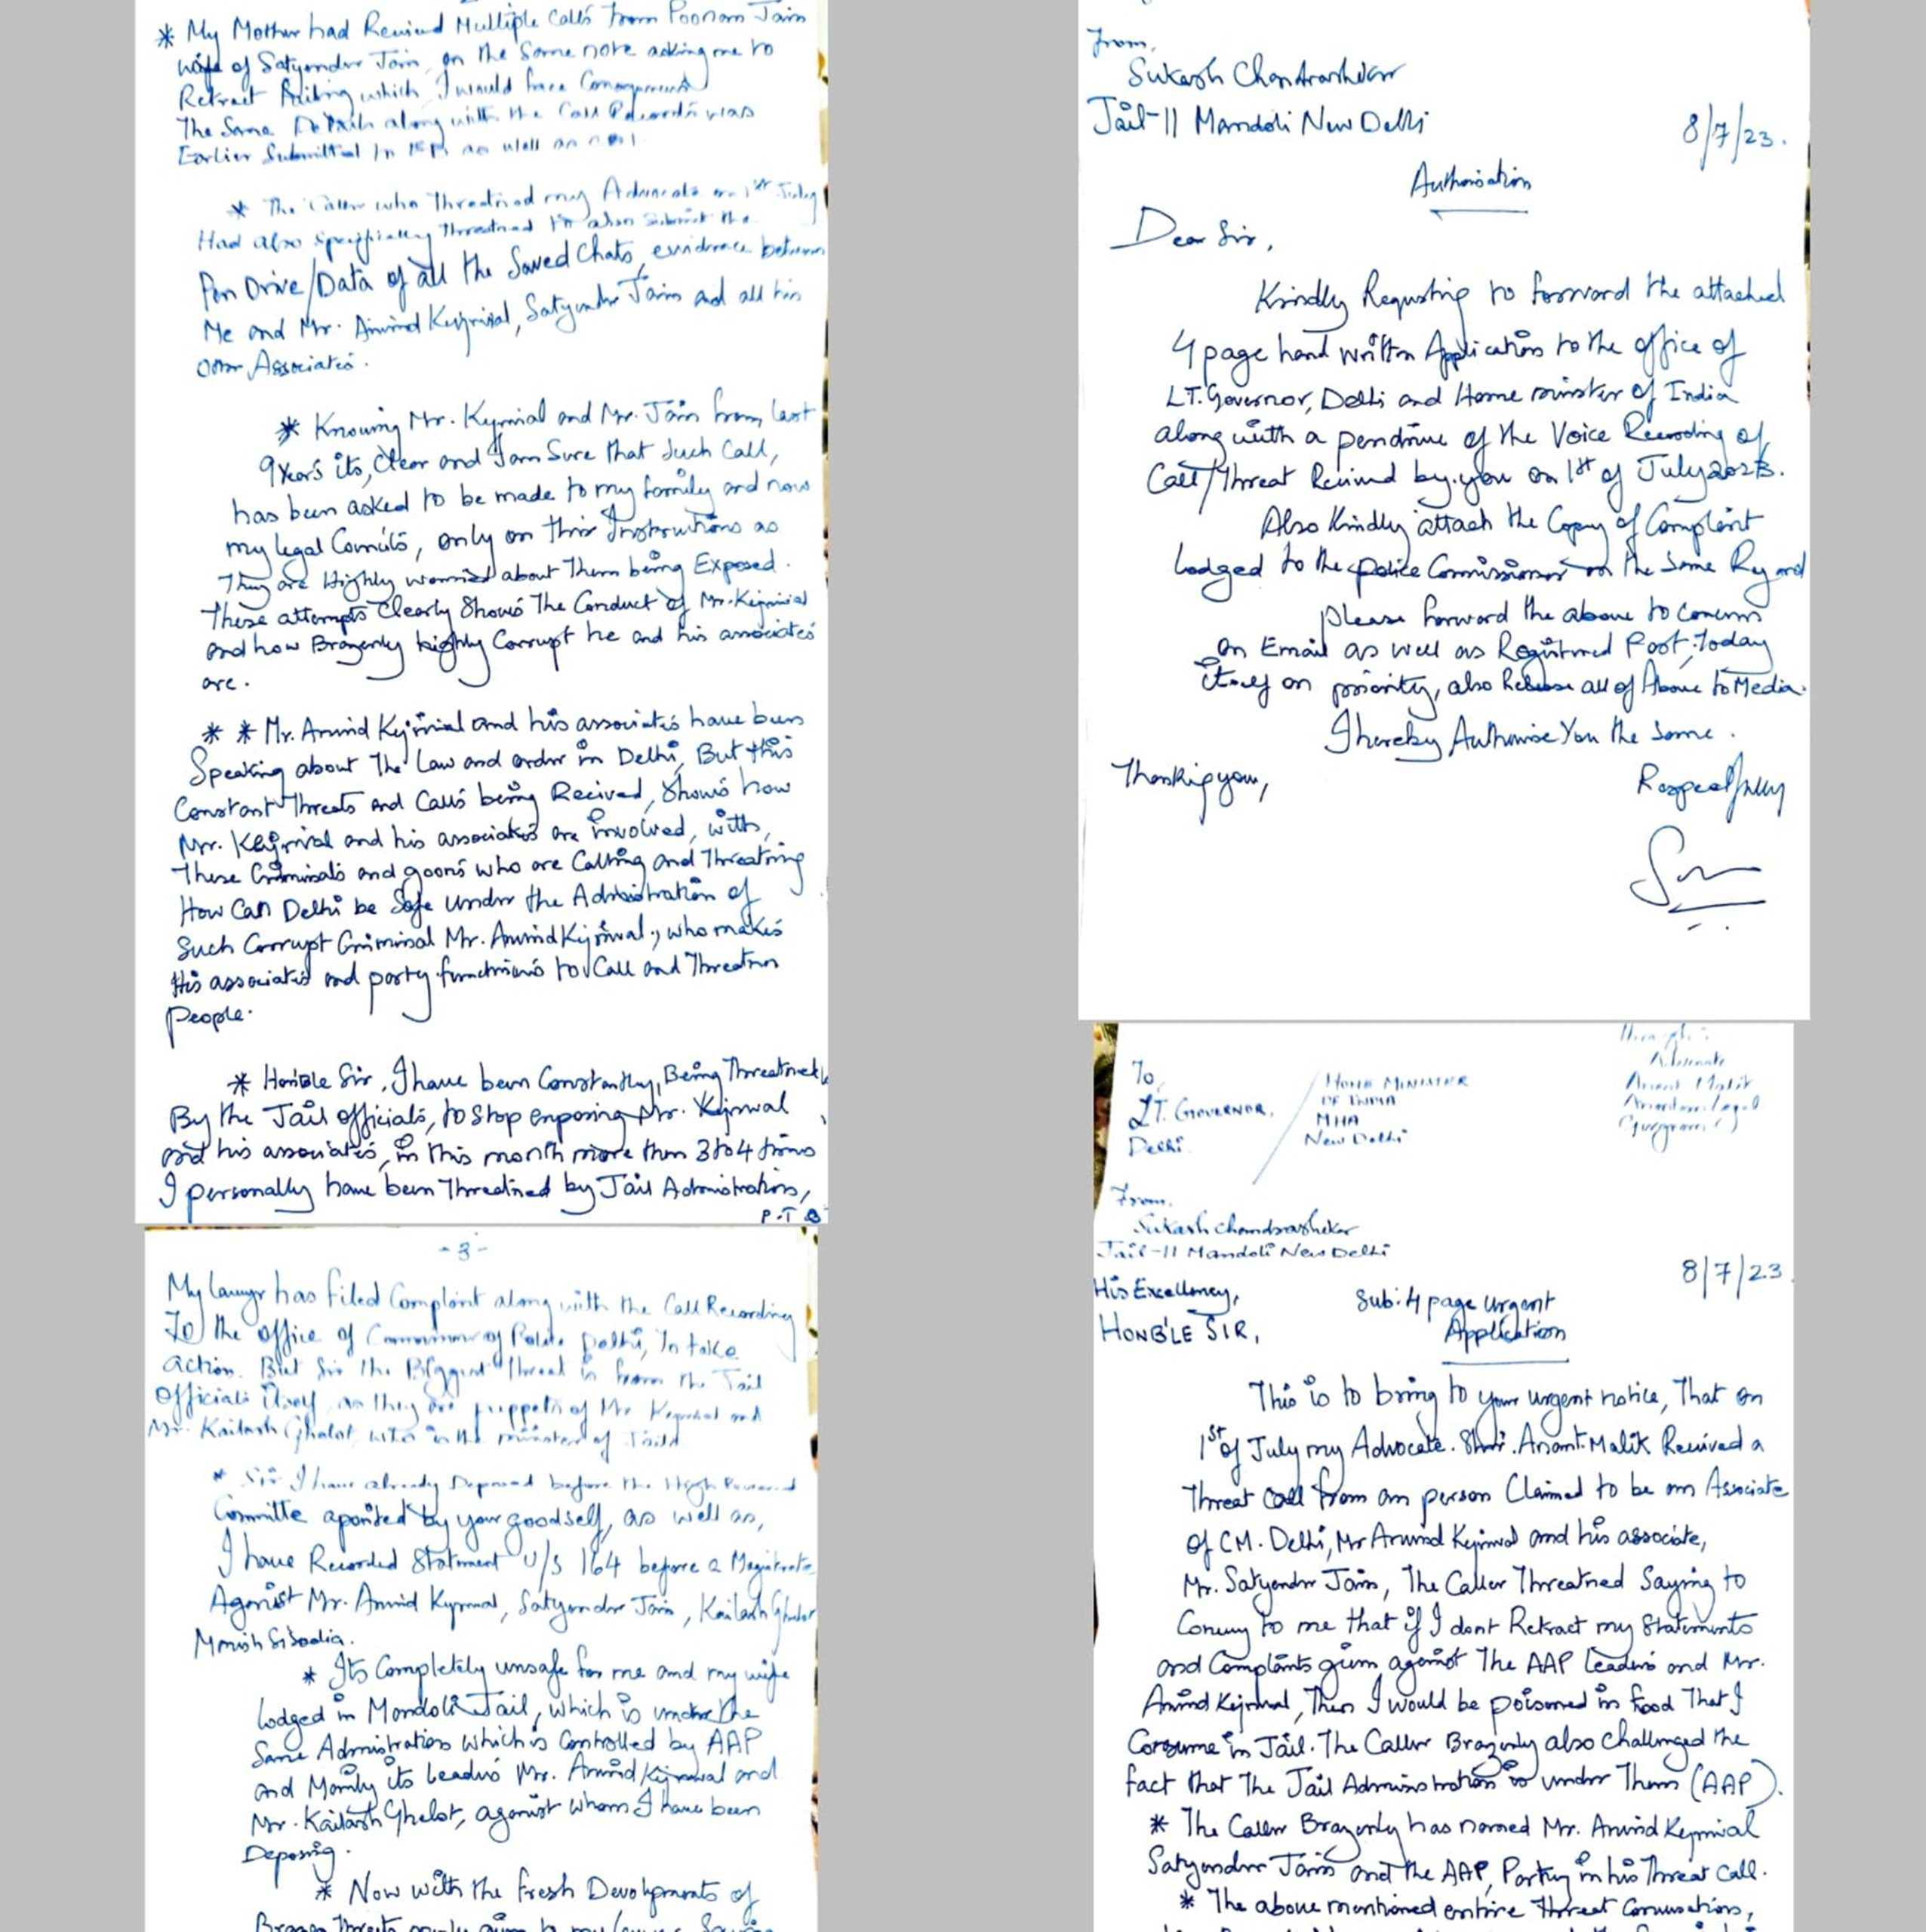 * My Mother had Received Multiple Calls from Poonam Jain
wife of Satyendar Jain, on the Same note asking me to
Retract failing which I would face Consequences
The Same Details along with the Call Records was
Earlier Submitted In as well as
* The Caller who Threatned my Advocate on 1st July
Had also specifically threatned to also submit the
Pen Drive/Data of all the Saved Chats, evidence between
Me and Mr. Arvind Kejriwal, Satyendar Jain and all his
other Associates.
* Knowing Mr. Kejriwal and Mr. Jain from last
9 Years its, clear and I am Sure that Such Call,
has been asked to be made to my family and now
my legal Councils, only on their Instructions as
They are Highly worried about Them being Exposed.
These attempts Clearly Shows The Conduct of Mr. Kejriwal
and how Brazenly highly Corrupt he and his associates
are.
* * Mr. Arvind Kejriwal and his associates have been
Speaking about The Law and order in Delhi, But this
Constant Threats and Calls being Recived, Shows how
Mr. Kejriwal and his associates are involved, with,
These Criminals and goons who are Calling and Threatning
How Can Delhi be Safe under the Administration of
Such Corrupt Criminal Mr. Arvind Kejriwal, who makes
His associates and party functionis to Call and Threaten
People.
* Hon'ble Sir, I have been Constantly, Being Threatned
By the Jail officials, to Stop exposing Mr. Kejriwal
and his associates, in this month more then 3 to 4 times
I personally have been Threatned by Jail Administration,
P.T.O
- 3 -
My lawyer has filed Complaint along with the Call Recording
To the office of Commissioner of Police Delhi, To take
action. But Sir the Biggest threat is from the Jail
Officials itself, as they are puppets of Mr Kejriwal and
Mr. Kailash Ghelot, who is the minister of Jails
* Sir I have already Deposed before the High Powered
Committe aponted by your goodself, as well as,
I have Recorded Statment U/S 164 before a Magistrate
Against Mr. Arvind Kejriwal, Satyendar Jain, Kailash Ghelot
Manish Sisodia.
* Its Completely unsafe for me and my wife
lodged in Mandoli Jail, which is under the
Same Administration which is Controlled by AAP
and Mainly its leaders Mr. Arvind Kejriwal and
Mr. Kailash Ghelot, against whom I have been
Deposing.
* Now with the Fresh Devolopments of
threats my lawyer
From,
Sukash Chandrashekar
Jail-11 Mandoli New Delhi
8/7/23.
Authorisation
Dear Sir,
Kindly Requsting to forward the attached
4 page hand written Application to the office of
LT. Governor, Delhi and Home minister of India
along with a pendrive of the Voice Recording of
Call/threat Recived by you on 1st of July 2023.
Also Kindly attach the Copy of Complaint
lodged to the police Commissioner on the Same Regard
please forward the above to concern
on Email as well as Registered Post, today
itself on priority, also Release all of Above to Media.
I hereby Authorise You the Same.
Thanking you,
Respectfully
To,
LT. GOVERNOR,
Delhi.
HOME MINISTER
OF INDIA
MHA
New Delhi
Through:
Advocate
Anant Malik
Legal
From,
Sukash Chandrashekar
Jail-11 Mandoli New Delhi
8/7/23.
His Excellency,
HON'BLE SIR,
Sub: 4 page urgent
Application
This is to bring to your urgent notice, That on
1st of July my Advocate. Shri. Anant. Malik Recived a
Threat call from an person Claimed to be an Associate
of CM. Delhi, Mr Arvind Kejriwal and his associate,
Mr. Satyendar Jain, The Caller Threatned Saying to
Convey to me that if I dont Retract my Statements
and Complants given against The AAP leaders and Mr.
Arvind Kejriwal, Then I would be poisoned in food That I
Consume in Jail. The Caller Brazenly also challenged the
fact that The Jail Administration is under Them (AAP).
* The Caller Brazenly has named Mr. Arvind Kejriwal
Satyendar Jain and the AAP, Party in his Threat call.
* The above mentioned entire threat Conversations,